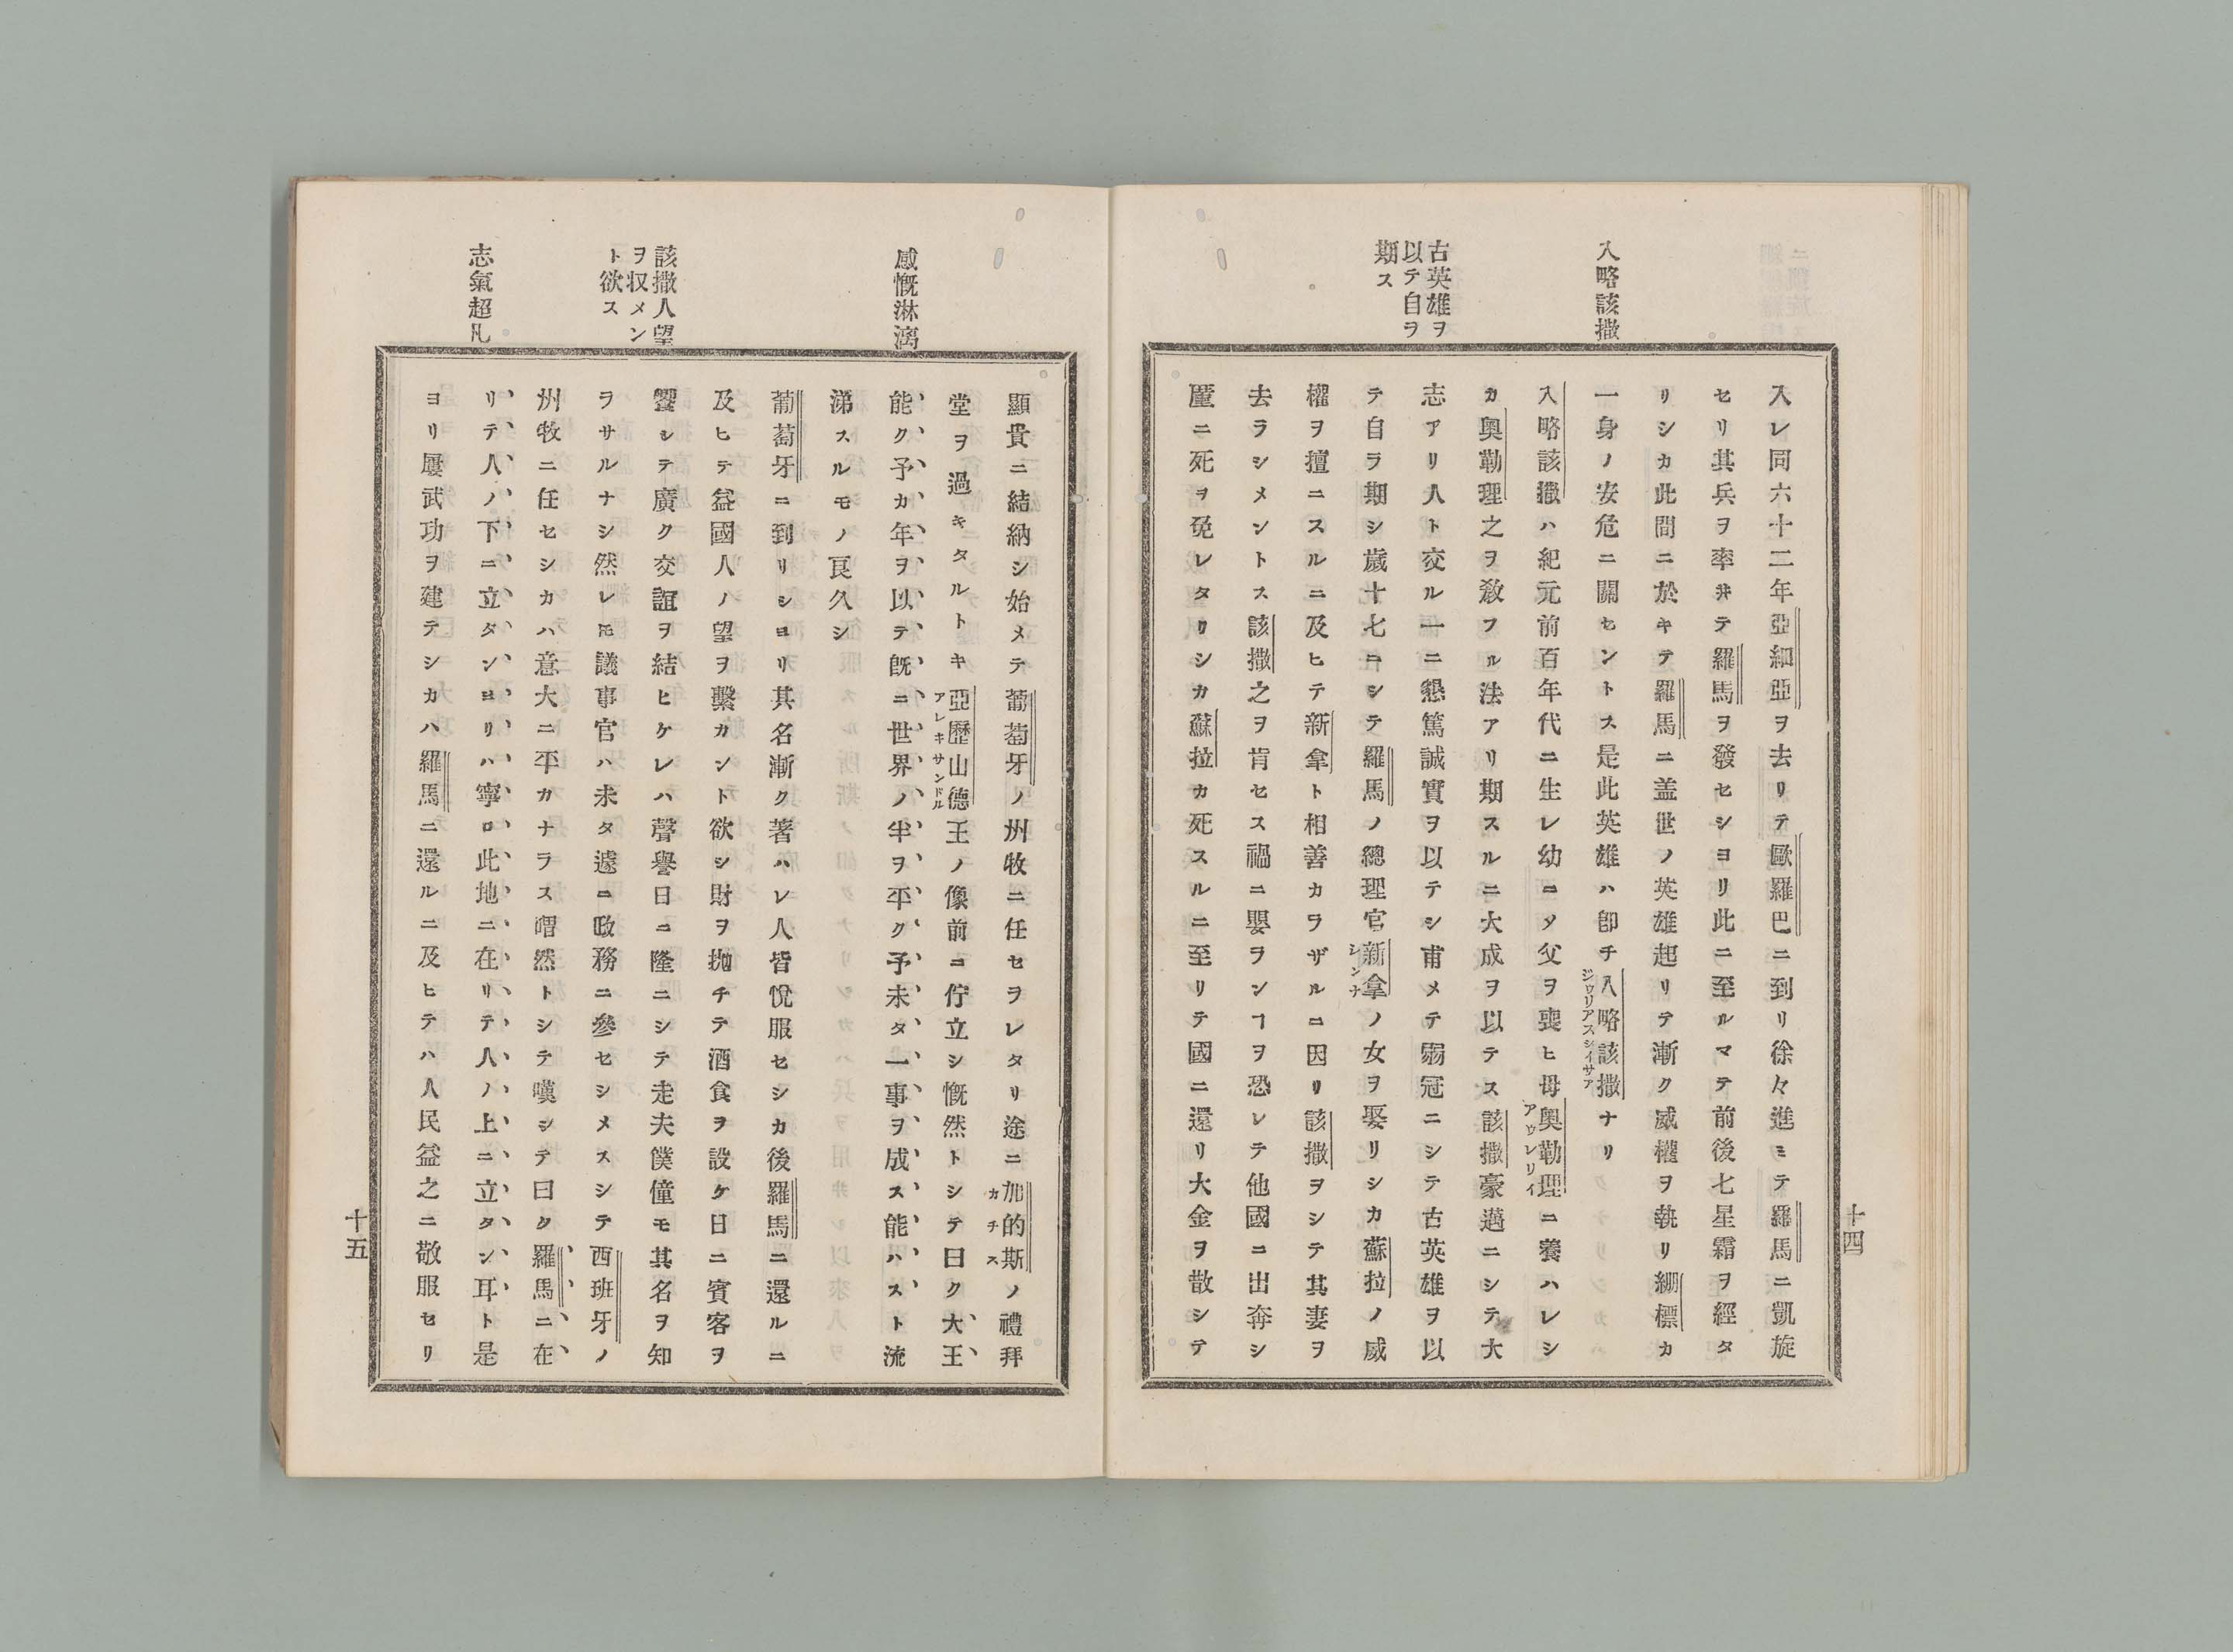 十四
入略該撒
古英雄ヲ
以テ自ヲ
期ス
入レ同六十二年亞細亞ヲ去リテ歐羅巴ニ到リ徐々進ミテ羅馬ニ凱旋
セリ其兵ヲ率井テ羅馬ヲ發セシヨリ此ニ至ルマテ前後七星霜ヲ經タ
リシカ此間ニ於キテ羅馬ニ盖世ノ英雄起リテ漸ク威權ヲ執リ繃標カ
一身ノ安危ニ關セントス是此英雄ハ卽チ入略該撒ナリ
ジウリアスシイサア
入略該撒ハ紀元前百年代ニ生レ幼ニメ父ヲ喪ヒ母奧勒理ニ養ハレシ
アウレリイ
カ奧勒理之ヲ敎フル法アリ期スルニ大成ヲ以テス該撒豪邁ニシテ大
志アリ人ト交ル一ニ懇篤誠實ヲ以テシ甫メテ弱冠ニシテ古英雄ヲ以
テ自ラ期シ歲十七ニシテ羅馬ノ總理官新拿ノ女ヲ娶リシカ蘇拉ノ威
シンナ
權ヲ擅ニスルニ及ヒテ新拿ト相善カラザルニ因リ該撒ヲシテ其妻ヲ
去ラシメントス該撒之ヲ肯セス禍ニ嬰ランヿヲ恐レテ他國ニ出奔シ
厪ニ死ヲ免レタリシカ蘇拉カ死スルニ至リテ國ニ還リ大金ヲ散シテ
感慨淋漓
該撒人望
ヲ収メン
ト欲ス
志氣超凡
顯貴ニ結納シ始メテ葡萄牙ノ州牧ニ任セヲレタリ途ニ加的斯ノ禮拜
カチス
堂ヲ過キタルトキ亞歷山德王ノ像前ニ佇立シ慨然トシテ曰ク大王
アレキサンドル
能ク予カ年ヲ以テ旣ニ世界ノ半ヲ平ク予未タ一事ヲ成ス能ハスト流
涕スルモノ良久シ
葡萄牙ニ到リシヨリ其名漸ク著ハレ人皆悅服セシカ後羅馬ニ還ルニ
及ヒテ益國人ノ望ヲ繫カント欲シ財ヲ抛チテ酒食ヲ設ケ日ニ賓客ヲ
饗シテ廣ク交誼ヲ結ヒケレハ聲譽日ニ隆ニシテ走夫僕僮モ其名ヲ知
ヲサルナシ然レ𪜈議事官ハ未タ遽ニ政務ニ參セシメスシテ西班牙ノ
州牧ニ任セシカハ意大ニ平カナラス喟然トシテ嘆シテ曰ク羅馬ニ在
リテ人ノ下ニ立タンヨリハ寧ロ此地ニ在リテ人ノ上ニ立タン耳ト是
ヨリ屢武功ヲ建テシカハ羅馬ニ還ルニ及ヒテハ人民益之ニ敬服セリ
十五